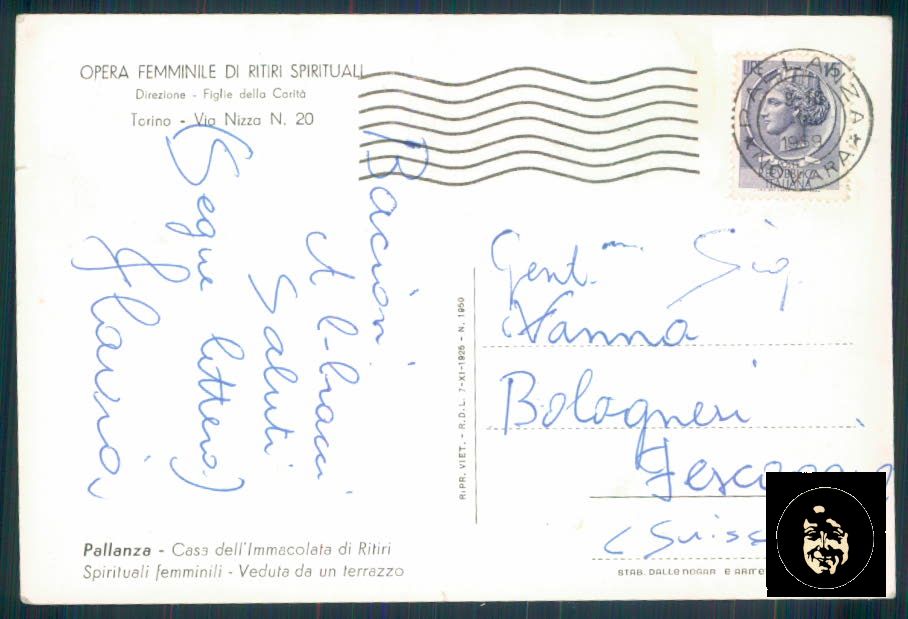 OPERA FEMMINILE DI RITIRI SPIRITUALI
Direzione - Figlie della Carità
Torino - Via Nizza N. 20
LIRE 15
REPUBBLICA
ITALIANA
PALLANZA
1959
* NOVARA *
Bacioni
Saluti
(Segue lettera)
Flavia
Gent.ma Sig.
Nanna
Bologneri
(Suiss
RIPR. VIET. - R.D.L. 7-XI-1925 - N. 1950
Pallanza - Casa dell'Immacolata di Ritiri
Spirituali femminili - Veduta da un terrazzo
STAB. DALLE NOGAR E ARME